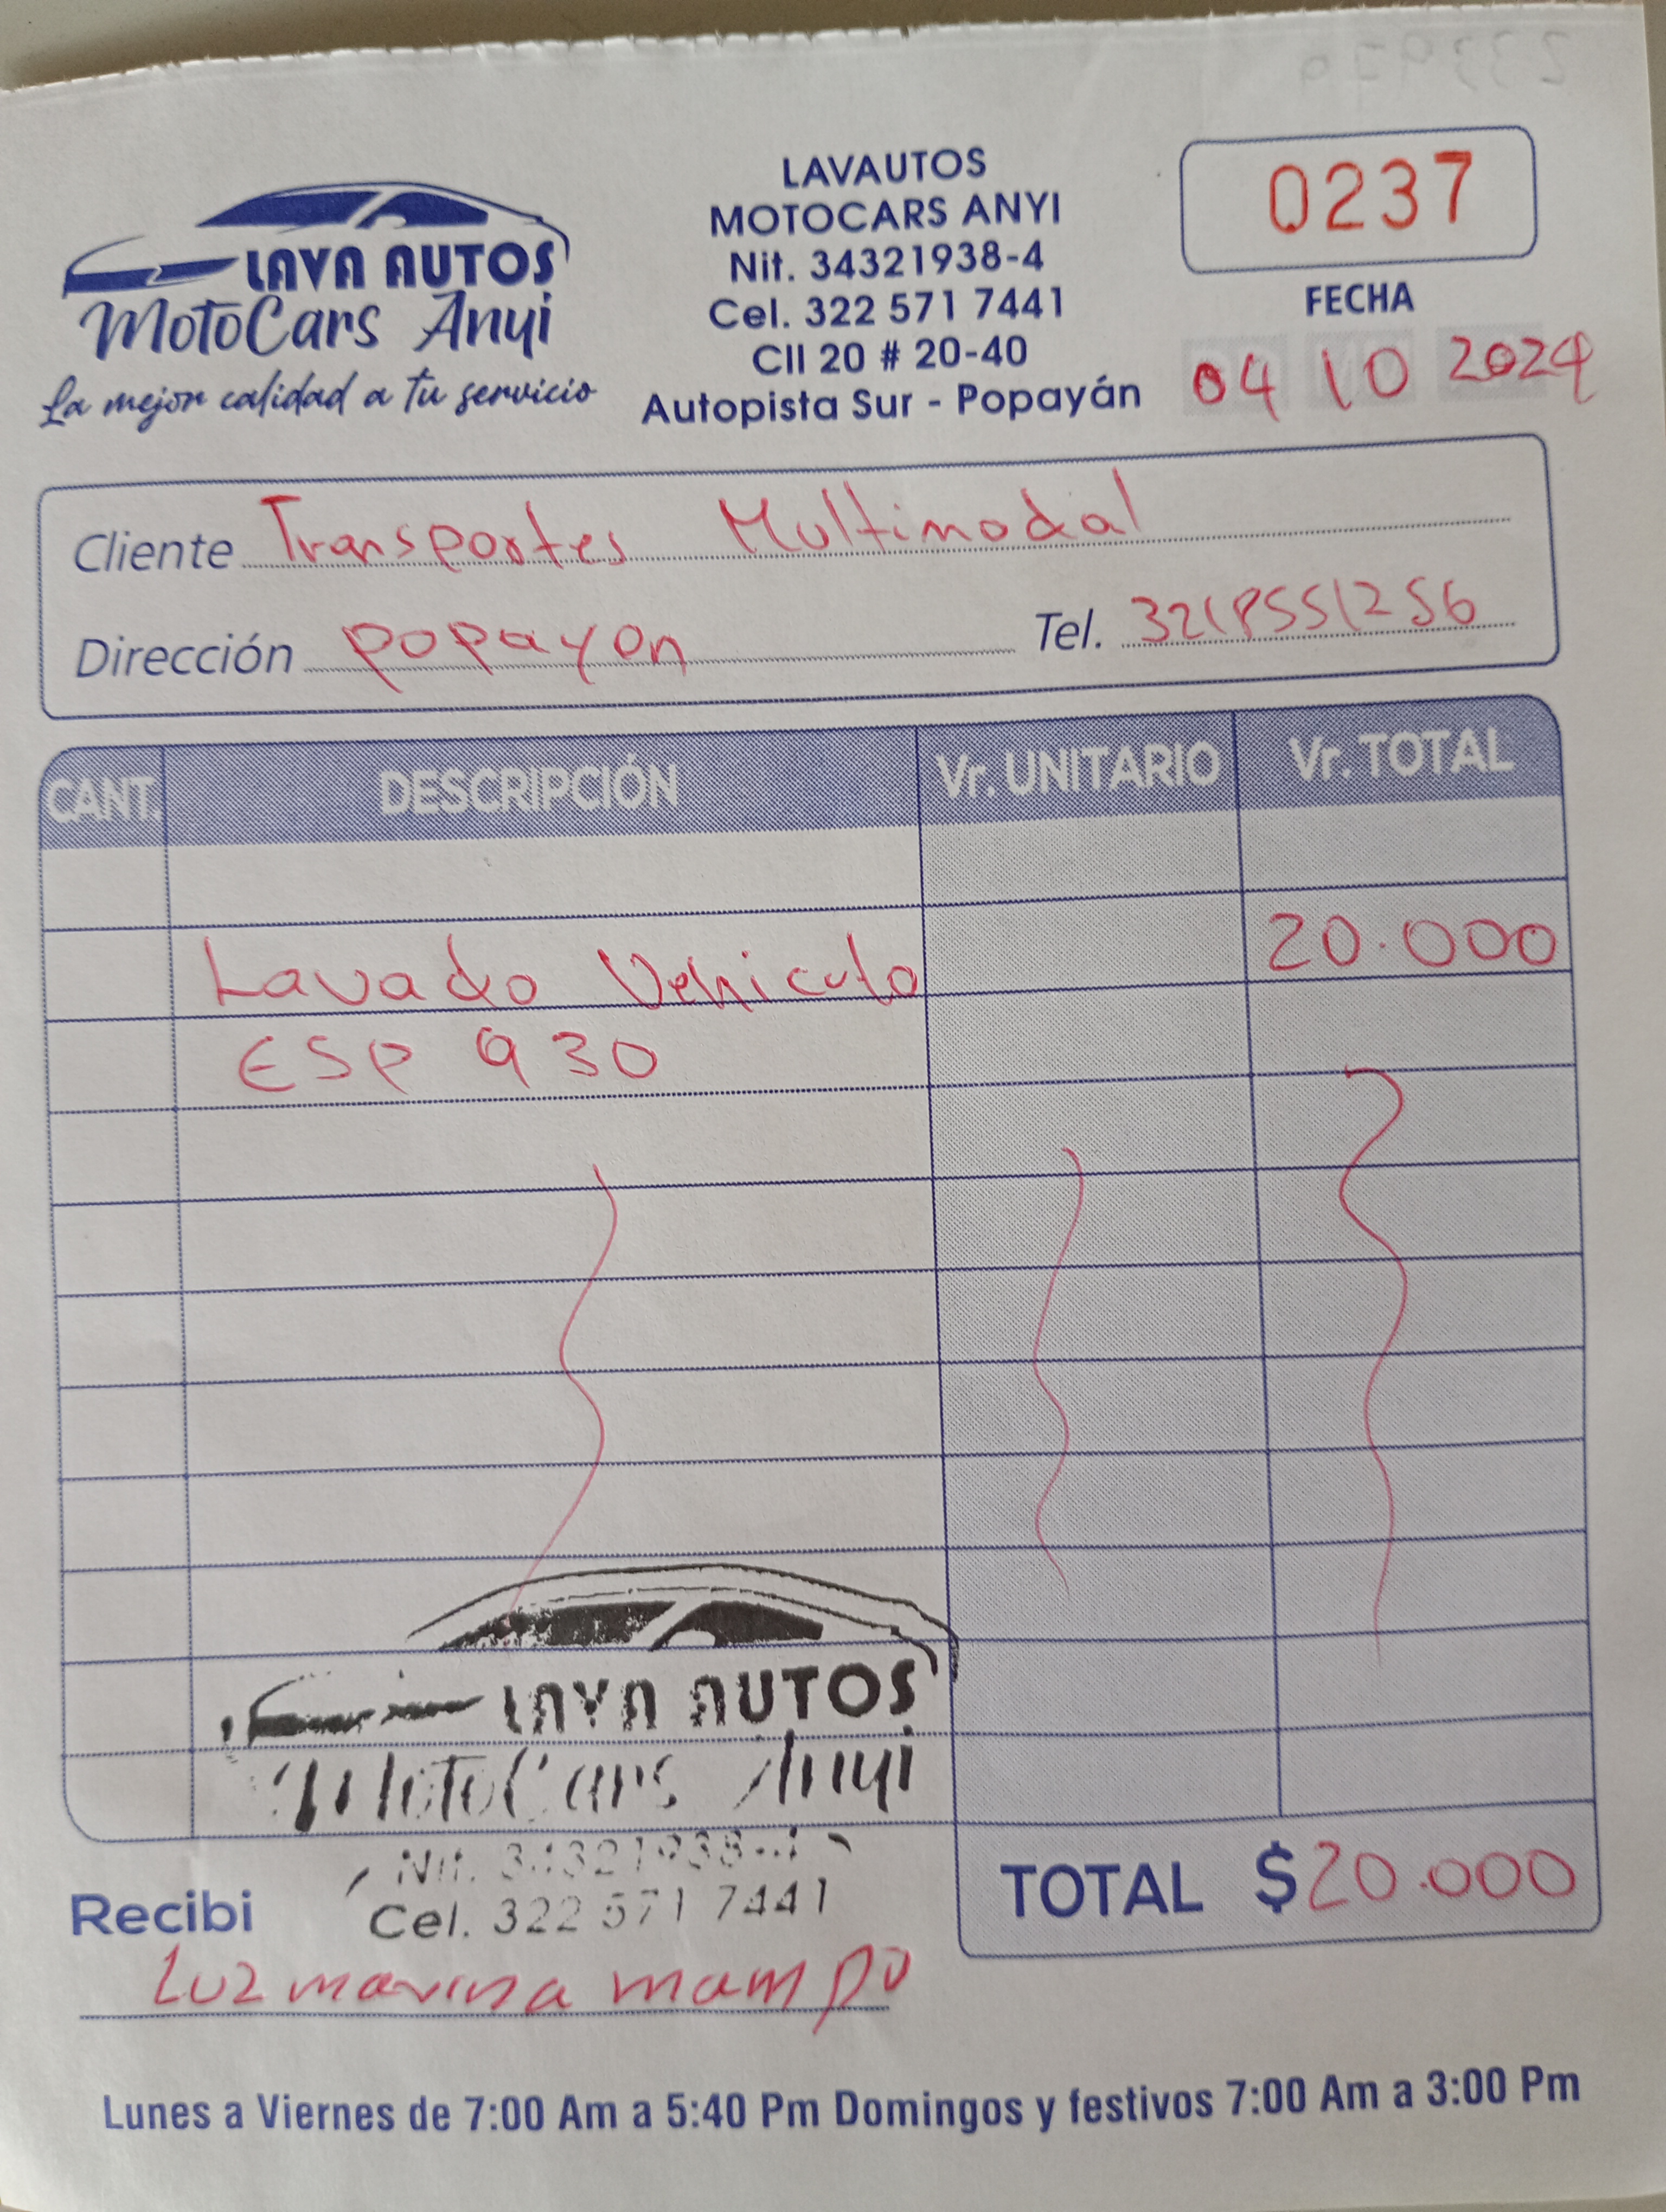 LAVA AUTOS
MotoCars Anyi
La mejor calidad a tu servicio
LAVAUTOS
MOTOCARS ANYI
Nit. 34321938-4
Cel. 322 571 7441
Cll 20 # 20-40
Autopista Sur - Popayán
0237
FECHA
04 10 2024
Cliente Transportes Multimodal
Dirección popayan Tel. 3218551256
CANT. DESCRIPCIÓN Vr. UNITARIO Vr. TOTAL
Lavado Vehiculo 20.000
ESP 930
LAVA AUTOS
MotoCars Anyi
Nit. 34321938-4
Cel. 322 571 7441
TOTAL $ 20.000
Recibi
Luz marina mampo
Lunes a Viernes de 7:00 Am a 5:40 Pm Domingos y festivos 7:00 Am a 3:00 Pm